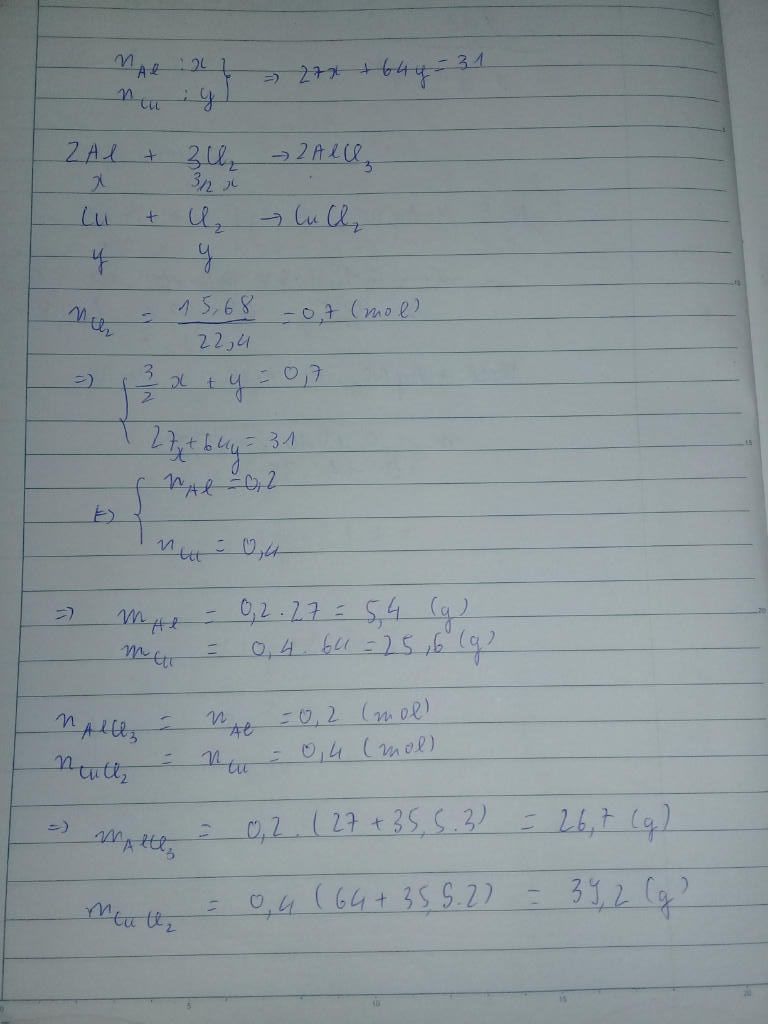 n_Al : x } => 27x + 64y = 31
n_Cu : y
2Al + 3Cl₂ → 2AlCl₃
x 3/2 x
Cu + Cl₂ → CuCl₂
y y
n_Cl₂ = 15,68 / 22,4 = 0,7 (mol)
=> { 3/2 x + y = 0,7
27x + 64y = 31
<=> { n_Al = 0,2
n_Cu = 0,4
=> m_Al = 0,2 . 27 = 5,4 (g)
m_Cu = 0,4 . 64 = 25,6 (g)
n_AlCl₃ = n_Al = 0,2 (mol)
n_CuCl₂ = n_Cu = 0,4 (mol)
=> m_AlCl₃ = 0,2 . (27 + 35,5 . 3) = 26,7 (g)
m_CuCl₂ = 0,4 (64 + 35,5 . 2) = 39,2 (g)
0 5 10 15 20